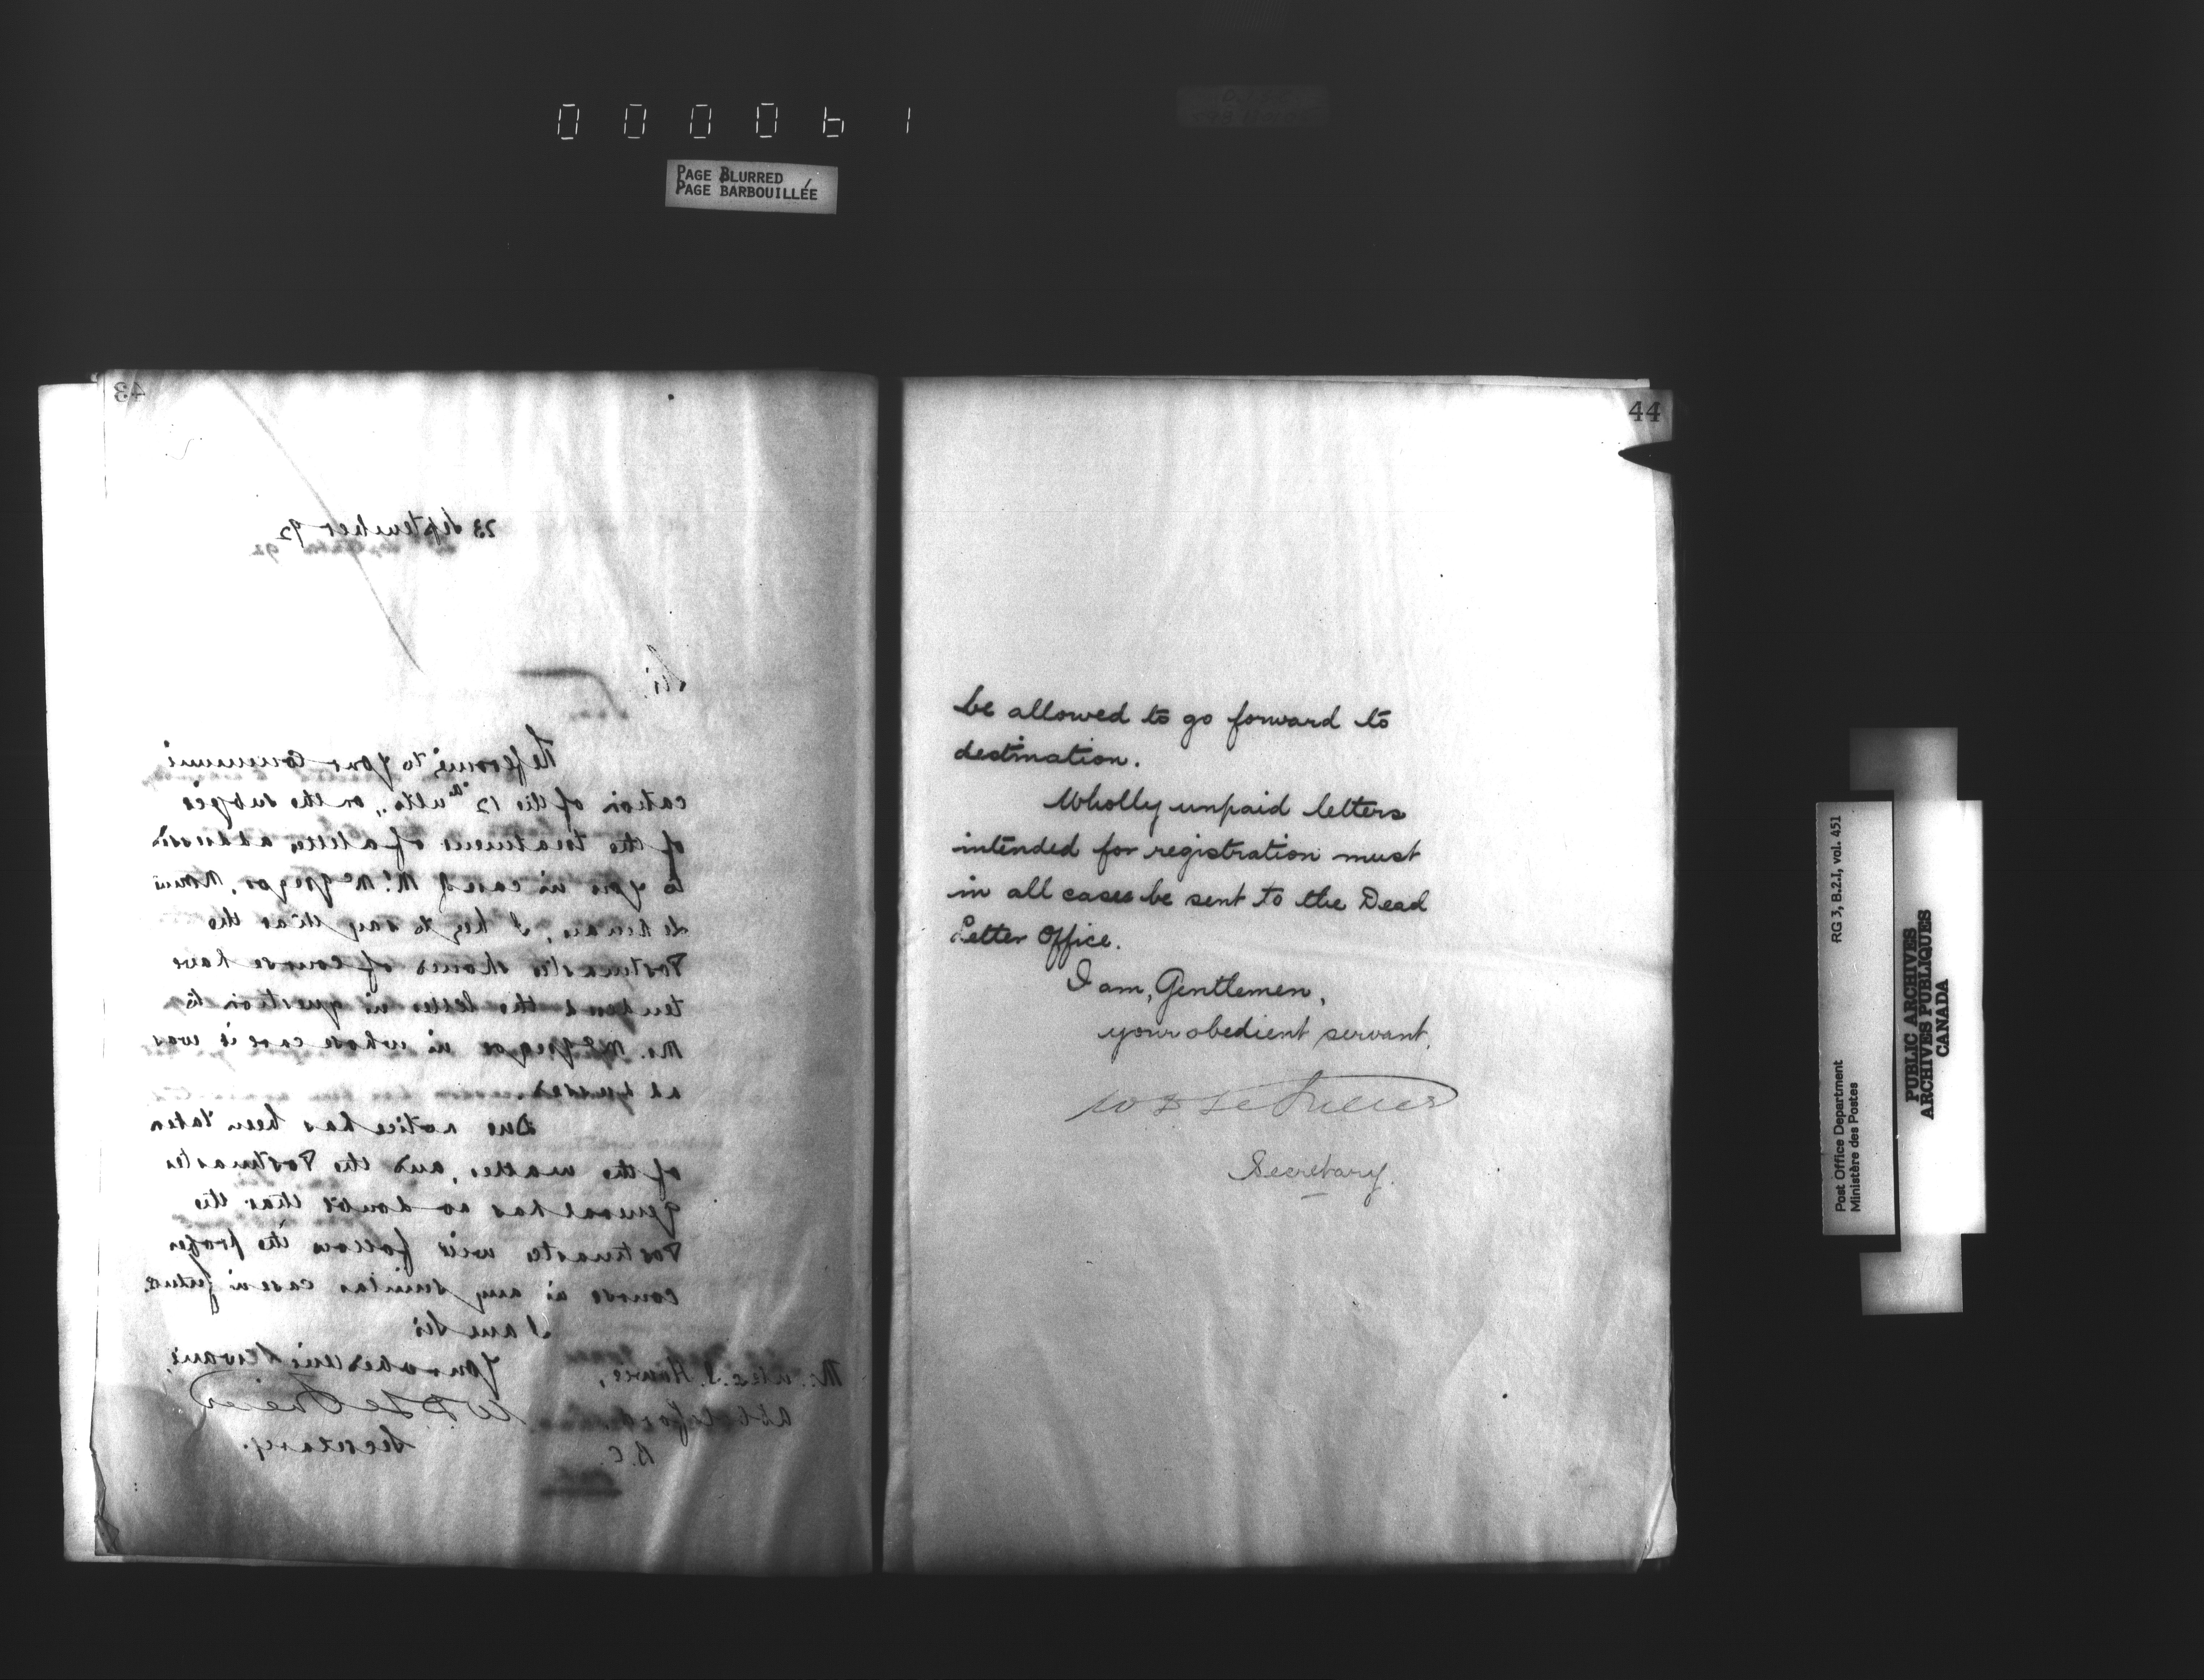 000061
PAGE BLURRED
PAGE BARBOUILLÉE
43
23 September 92
Sir,
Referring to your Communi
cation of the 12th ulto., on the subject
of the treatment of a letter addressed
to you in care of Mr. McGregor,
I beg to say that the
Postmaster should of course have
tendered the letter in question to
Mr. McGregor in whose care it was
addressed.
Due notice has been taken
of the matter, and the Postmaster
General has no doubt that the
Postmaster will follow the proper
course in any similar case in future.
I am Sir
Your obedient Servant,
W D LeSueur
Secretary.
Mr. Alex. S. Howie,
Abbotsford
B.C.
44
be allowed to go forward to
destination.
Wholly unpaid letters
intended for registration must
in all cases be sent to the Dead
Letter Office.
I am, Gentlemen,
your obedient servant.
W D LeSueur
Secretary.
Post Office Department
Ministère des Postes
RG 3, B.2.I, vol. 451
PUBLIC ARCHIVES
ARCHIVES PUBLIQUES
CANADA